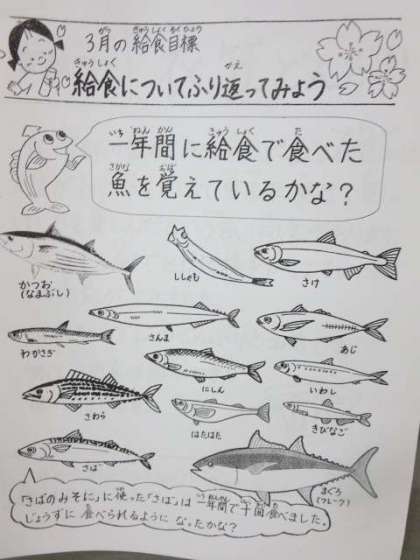 3月の給食目標
給食についてふり返ってみよう
一年間に給食で食べた
魚を覚えているかな？
かつお
(なまぶし)
ししゃも
さけ
わかさぎ
さんま
あじ
さわら
にしん
いわし
はたはた
きびなご
さば
まぐろ
(フレーク)
「さばのみそに」に使った「さば」は一年間で十回食べました。
じょうずに食べられるようになったかな？